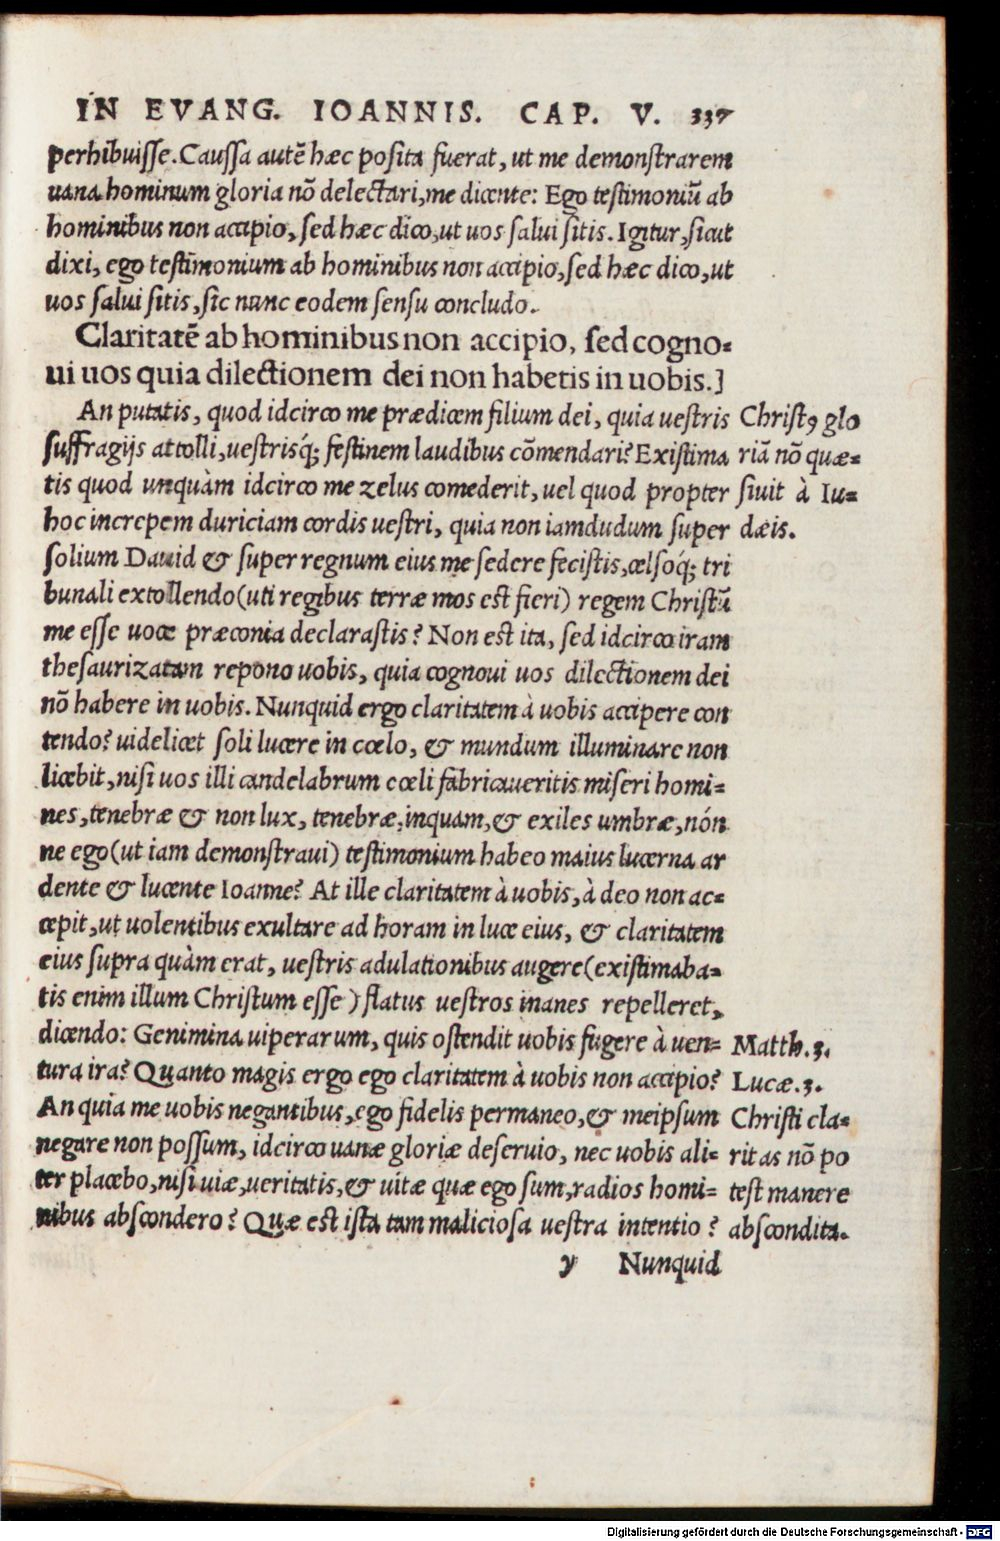 IN EVANG. IOANNIS. CAP. V. 337
perhibuisse. Caussa autē hæc posita fuerat, ut me demonstrarem
uana hominum gloria nō delectari, me dicente: Ego testimoniū ab
hominibus non accipio, sed hæc dico, ut uos salui sitis. Igitur, sicut
dixi, ego testimonium ab hominibus non accipio, sed hæc dico, ut
uos salui sitis, sic nunc eodem sensu concludo.
Claritatē ab hominibus non accipio, sed cogno=
ui uos quia dilectionem dei non habetis in uobis.]
An putatis, quod idcirco me prædicem filium dei, quia uestris
suffragijs attolli, uestrisq́; festinem laudibus cōmendari? Existima
tis quod unquàm idcirco me zelus comederit, uel quod propter
hoc increpem duriciam cordis uestri, quia non iamdudum super
solium Dauid & super regnum eius me sedere fecistis, celsoq́; tri
bunali extollendo (uti regibus terræ mos est fieri) regem Christū
me esse uoce præconia declarastis? Non est ita, sed idcirco iram
thesaurizatam repono uobis, quia cognoui uos dilectionem dei
nō habere in uobis. Nunquid ergo claritatem à uobis accipere con
tendo? uidelicet soli lucere in cœlo, & mundum illuminare non
licebit, nisi uos illi candelabrum cœli fabricaueritis miseri homi=
nes, tenebræ & non lux, tenebræ, inquam, & exiles umbræ, nón
ne ego (ut iam demonstraui) testimonium habeo maius lucerna ar
dente & lucente Ioanne? At ille claritatem à uobis, à deo non ac=
cepit, ut uolentibus exultare ad horam in luce eius, & claritatem
eius supra quàm erat, uestris adulationibus augere (existimaba=
tis enim illum Christum esse) flatus uestros inanes repelleret,
dicendo: Genimina uiperarum, quis ostendit uobis fugere à uen=
tura ira? Quanto magis ergo ego claritatem à uobis non accipio?
An quia me uobis negantibus, ego fidelis permaneo, & meipsum
negare non possum, idcirco uanæ gloriæ deseruio, nec uobis ali=
ter placebo, nisi uiæ, ueritatis, & uitæ quæ ego sum, radios homi=
nibus abscondero? Quæ est ista tam maliciosa uestra intentio?
y Nunquid
Christꝰ glo
riā nō quæ=
siuit à Iu=
dæis.
Matth. 3.
Lucæ. 3.
Christi cla=
ritas nō po
test manere
abscondita.
Digitalisierung gefördert durch die Deutsche Forschungsgemeinschaft - DFG